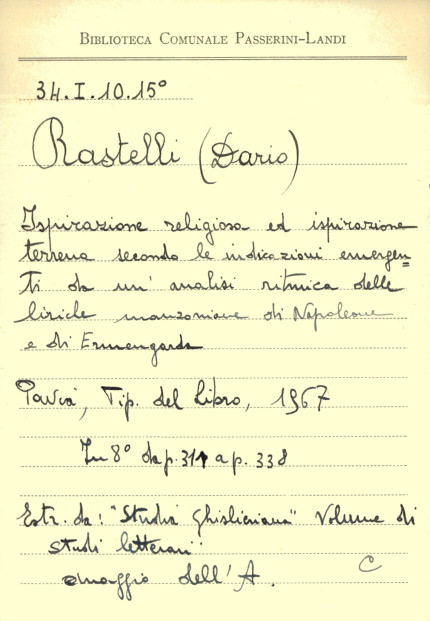 BIBLIOTECA COMUNALE PASSERINI-LANDI
34.I.10.15°
Rastelli (Dario)
Ispirazione religiosa ed ispirazione
terrena secondo le indicazioni emergen=
ti da un' analisi ritmica delle
liriche manzoniane di Napoleone
e di Ermengarda
Pavia, Tip. del Libro, 1967
In 8° da p. 311 a p. 338
Estr. da: "Studia Ghisleriana" Volume di
studi letterari
omaggio dell'A.
C